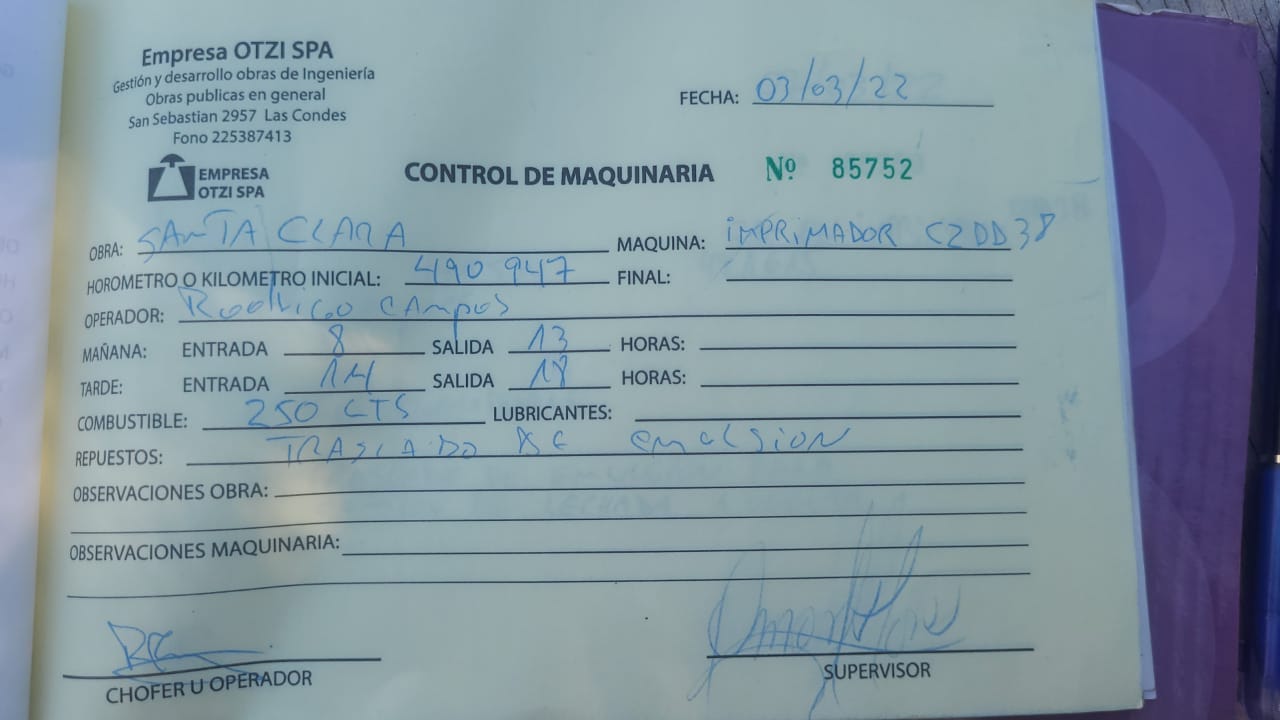 Empresa OTZI SPA
Gestión y desarrollo obras de Ingeniería
Obras publicas en general
San Sebastian 2957 Las Condes
Fono 225387413
FECHA: 03/03/22
EMPRESA
OTZI SPA
CONTROL DE MAQUINARIA Nº 85752
OBRA: SANTA CLARA MAQUINA: IMPRIMADOR CZDD38
HOROMETRO O KILOMETRO INICIAL: 490 947 FINAL:
OPERADOR: Rodrigo CAmpos
MAÑANA: ENTRADA 8 SALIDA 13 HORAS:
TARDE: ENTRADA 14 SALIDA 18 HORAS:
COMBUSTIBLE: 250 LTS LUBRICANTES:
REPUESTOS: TRASLADO DE emulsion
OBSERVACIONES OBRA:
OBSERVACIONES MAQUINARIA:
CHOFER U OPERADOR
SUPERVISOR